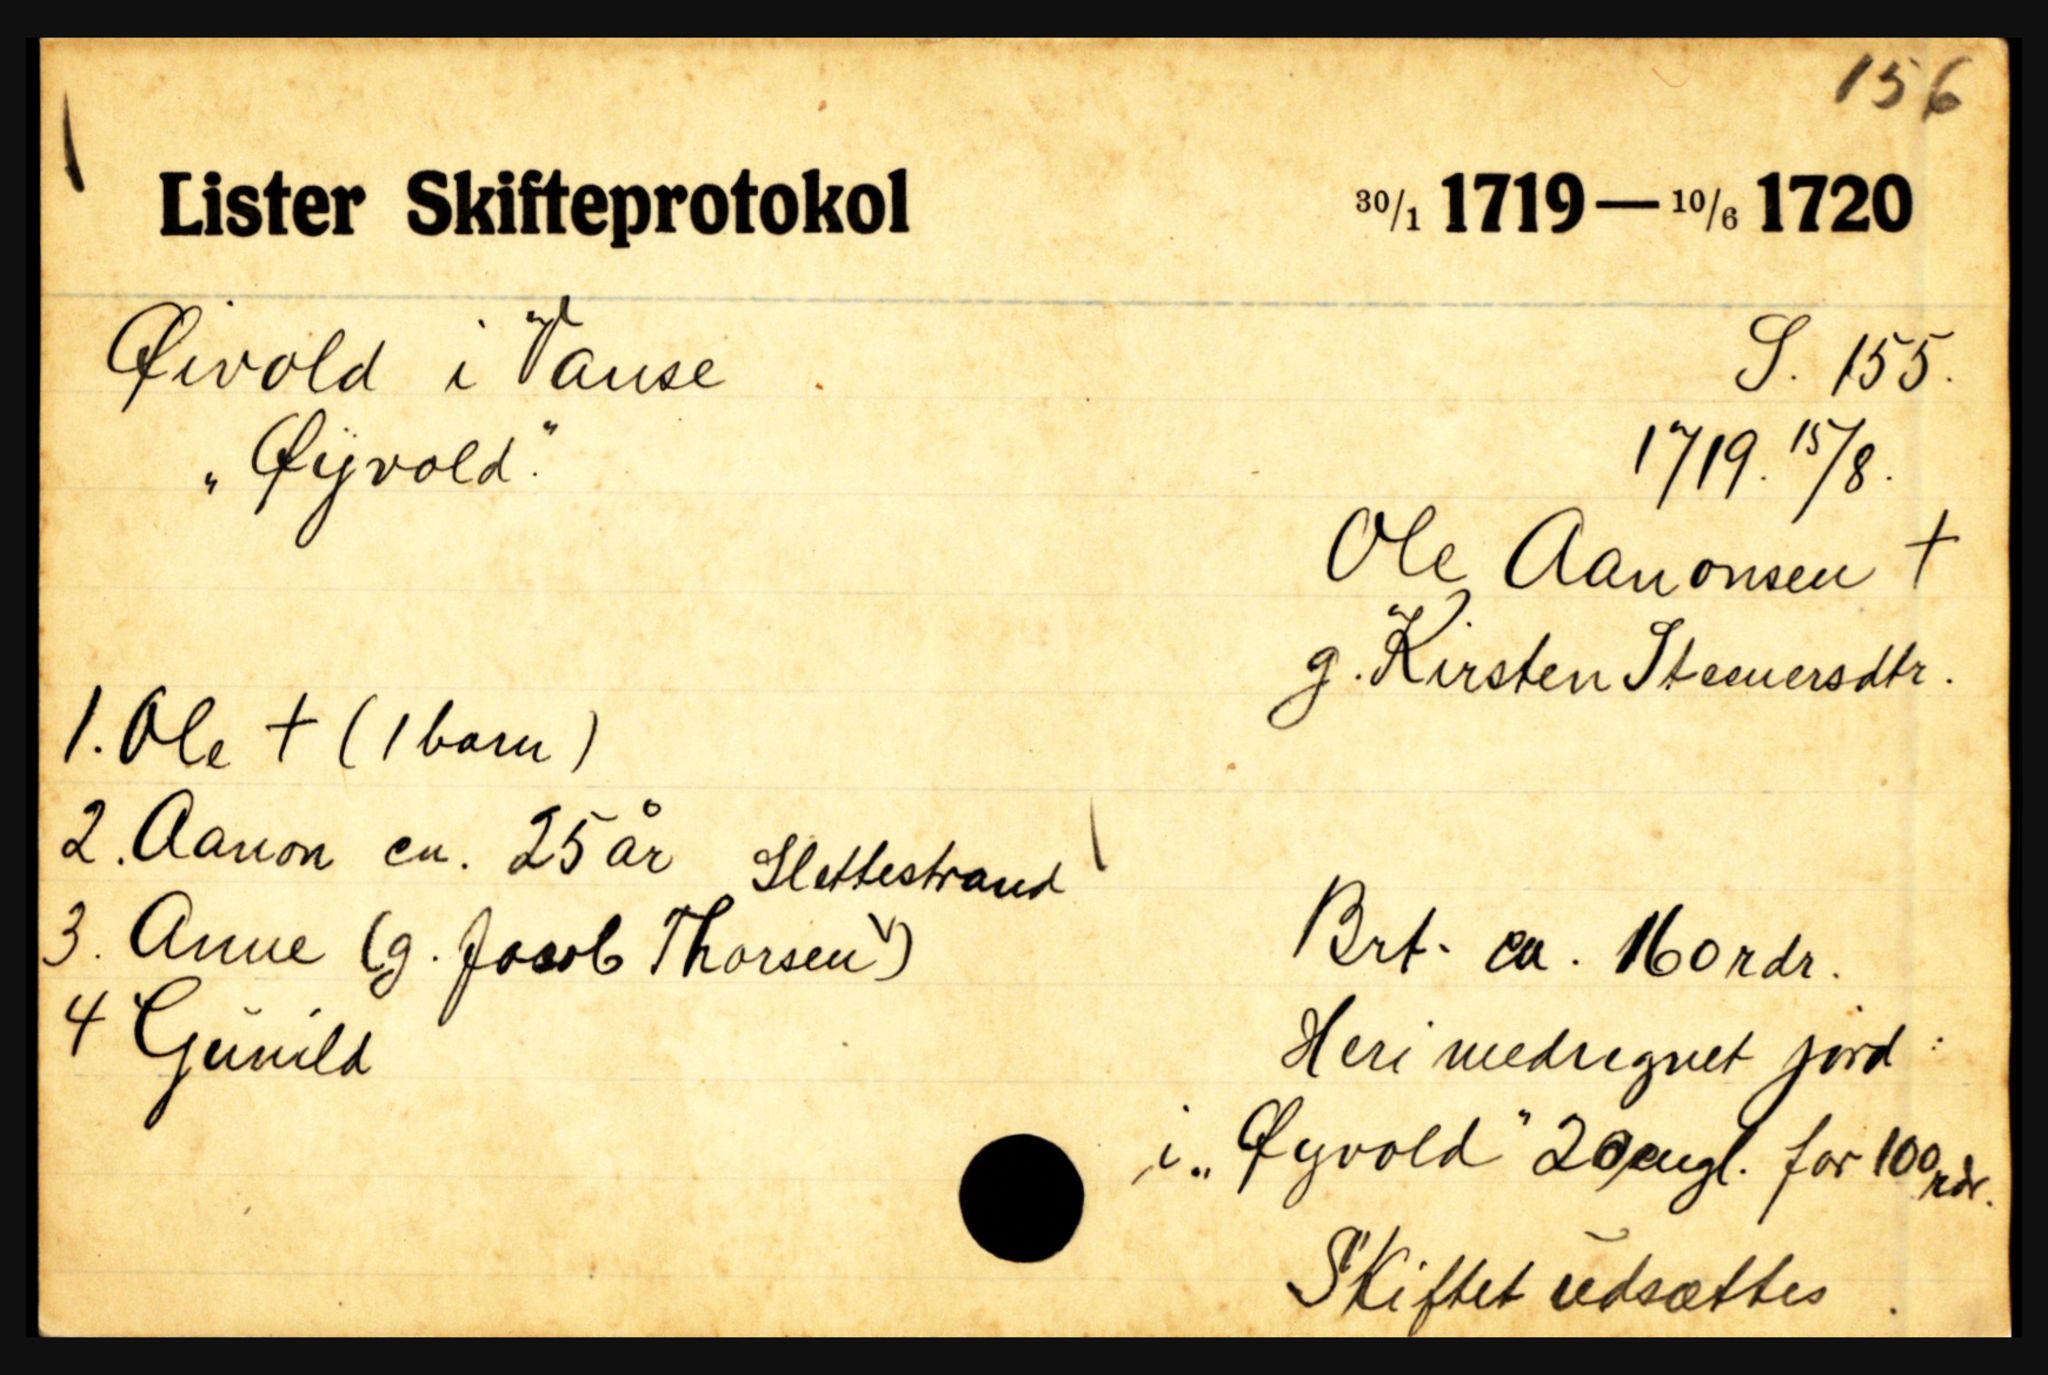 156
Lister Skifteprotokol 30/1 1719 — 10/6 1720
Øivold i Vanse S. 155.
„Øijvold". 1719. 15/8.
Ole Aanonsen †
g. Kirsten Steenersdtr.
1. Ole † (1 barn)
2. Aanon ca. 25 år
Slettestrand
3. Anne (g. Jacob Thorsen) Brt. ca. 160 rdr.
4 Gŭnild Heri medregnet jord:
i „Øyvold" 2 engl. for 100 rdr.
Skiftet ŭdsættes.